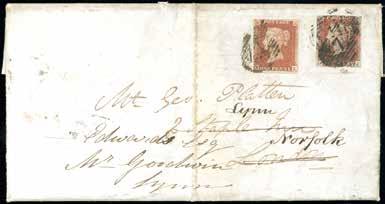 POSTAGE
ONE PENNY
Mr. Geo. Platten
Lynn
2 Staple Inn
Edwards Esq Norfolk
Mr Goodwin London
Lynn